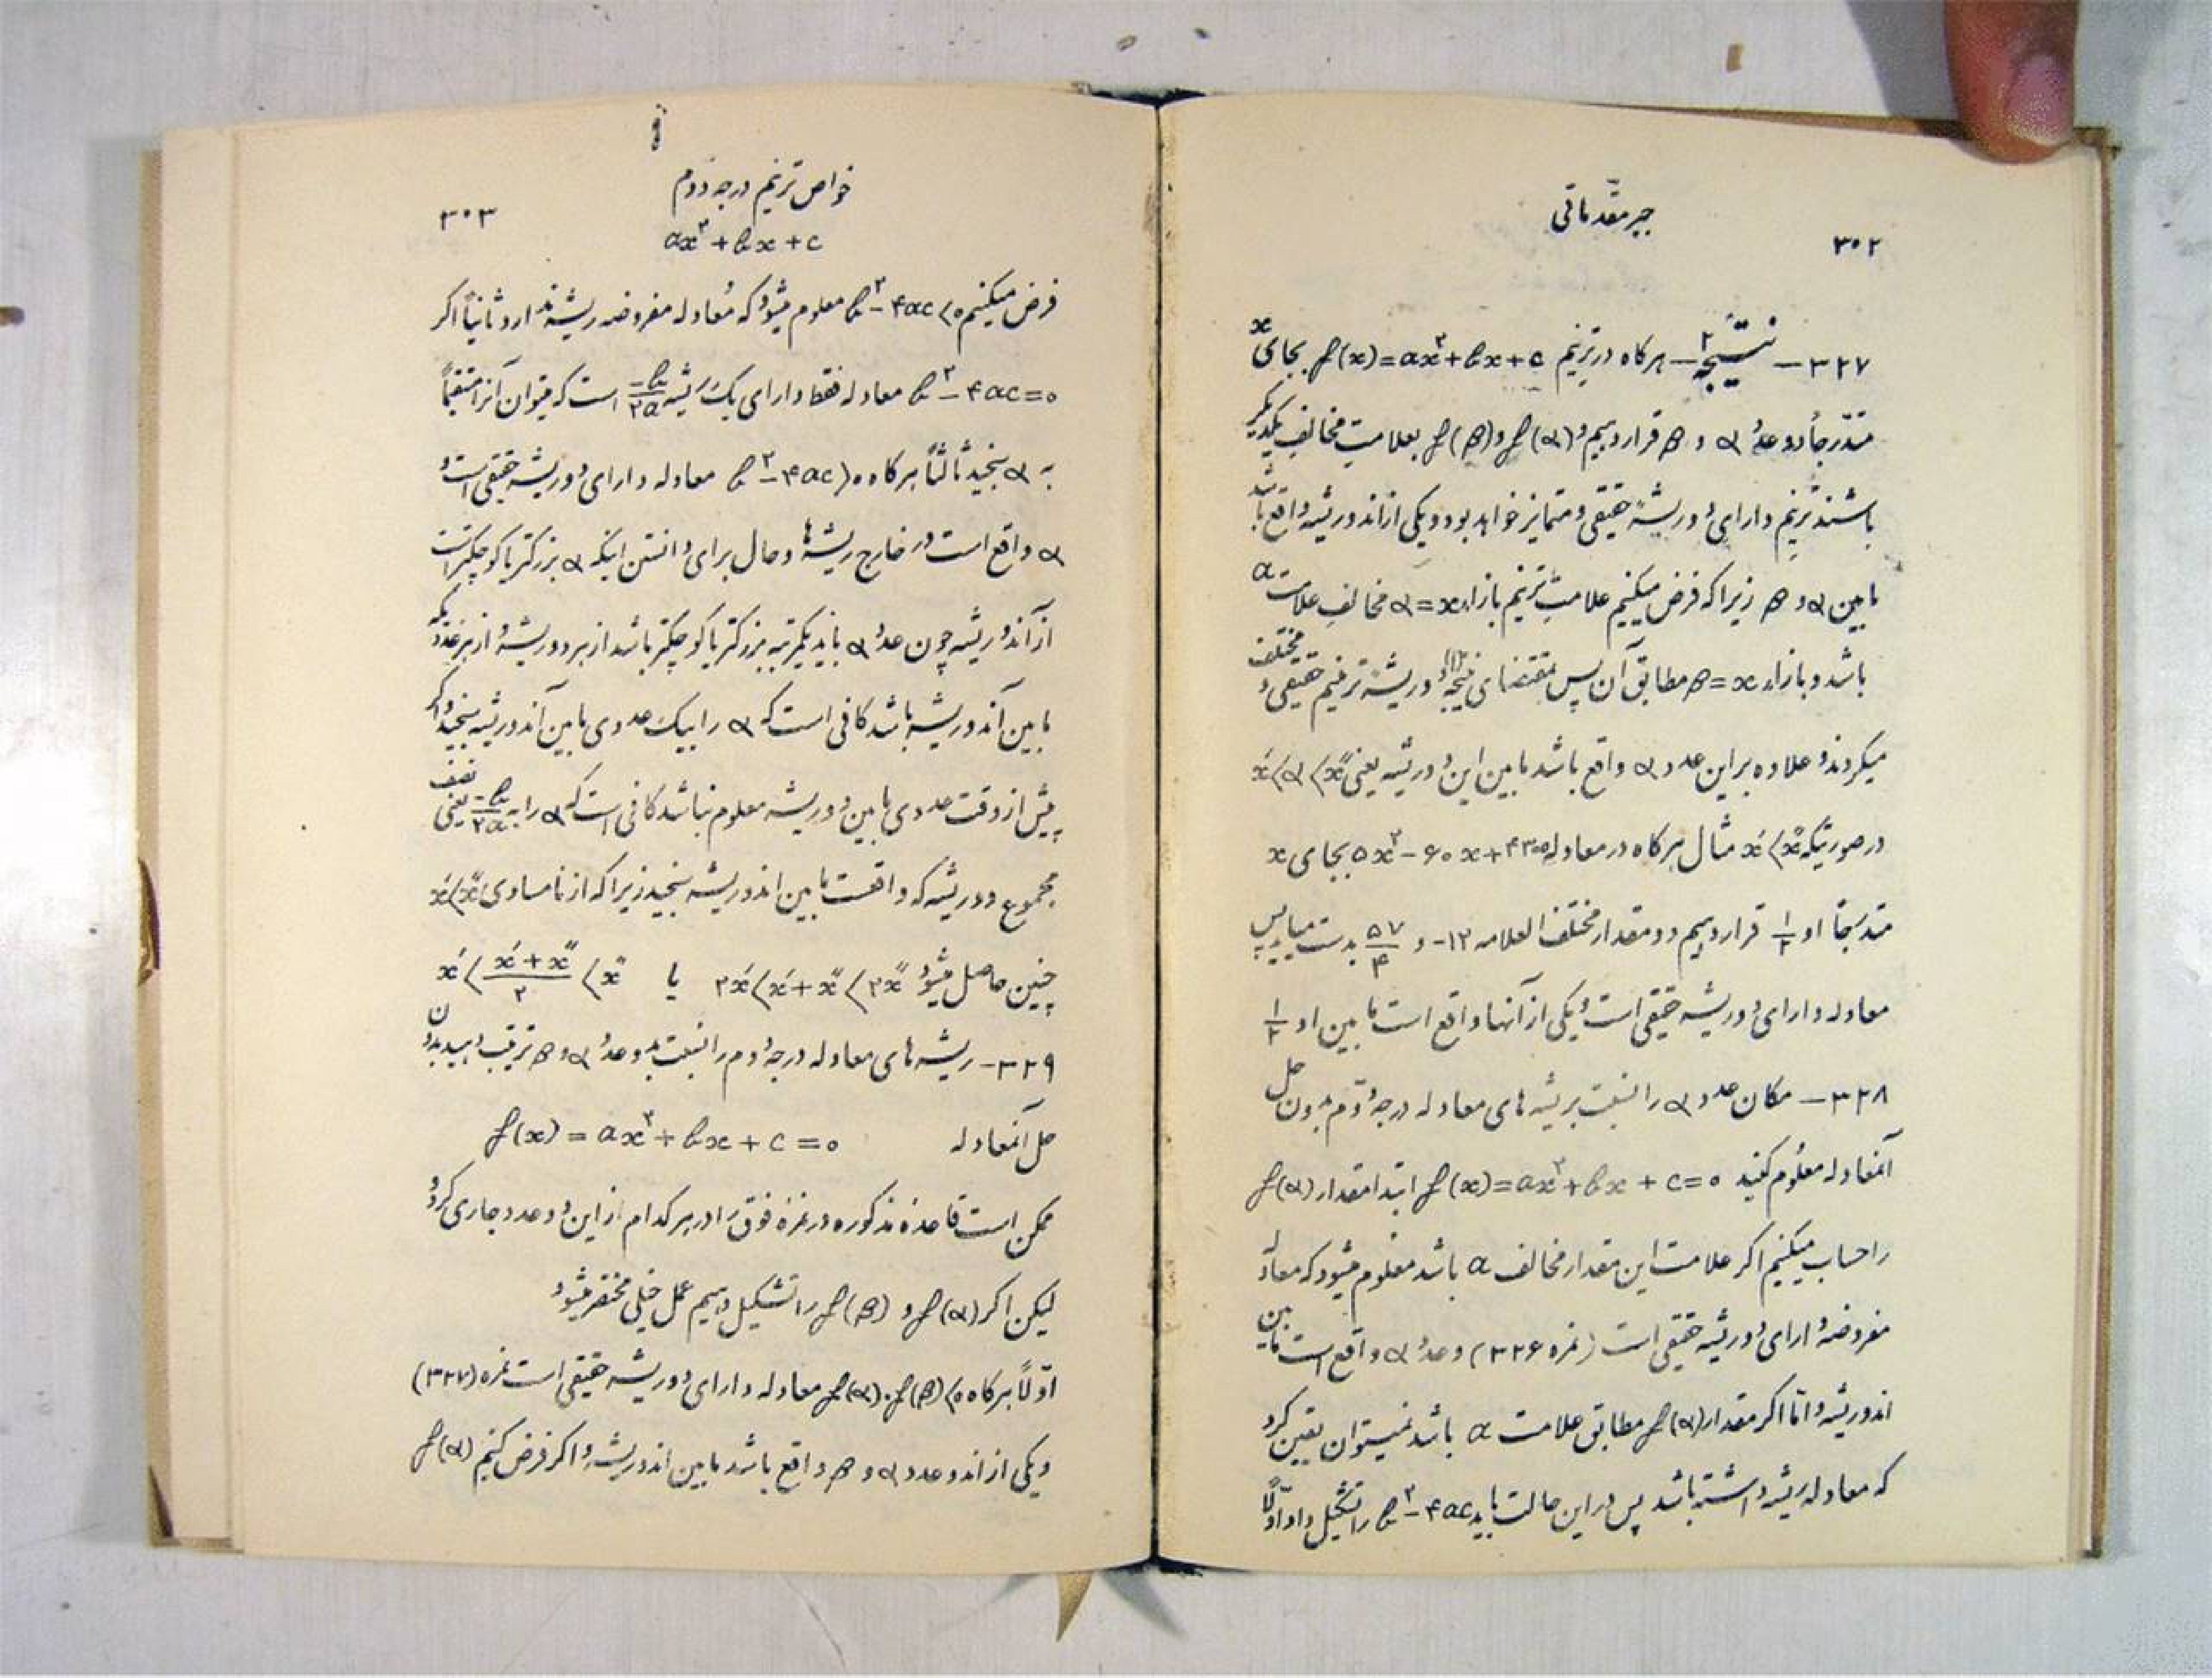 جبر مقدماتی
۳۰۲
۳۲۷ — نتیجه ۲ — هرگاه در ترینم f(x)=ax²+bx+c بجای x
متدرجاً دو عدد α و β قرار دهیم و f(α) و f(β) بعلامت مخالف یکدیگر
باشند ترینم دارای دو ریشهٔ حقیقی و متمایز خواهد بود و یکی از اندو ریشه واقع باشد
ما بین α و β زیرا که فرض میکنیم علامت ترینم بازاء x=α مخالف علامت a
باشد و بازاء x=β مطابق آن پس بمقتضای نتیجه (۱) دو ریشه ترینم حقیقی و مختلف
میگردند و علاوه بر این عدد α واقع باشد ما بین این دو ریشه یعنی x′〈α〈x″
در صورتیکه x′〈x″ مثال هرگاه در معادله ۵x²-۶۰x+۴۳=۰ بجای x
متدرجاً ۱ و ۱/۲ قرار دهیم دو مقدار مختلف العلامه ۱۲- و ۵۷/۴ بدست میاید پس
معادله دارای دو ریشه حقیقی است و یکی از آنها واقع است ما بین ۱ و ۱/۲
۳۲۸ — مکان عدد α را نسبت بریشه های معادله درجه دوم بدون حل
آنمعادله معلوم کنید f(x)=ax²+bx+c=۰ ابتدا مقدار f(α)
را حساب میکنیم اگر علامت این مقدار مخالف a باشد معلوم میشود که معادله
مفروضه دارای دو ریشه حقیقی است (نمره ۳۲۶) و عدد α واقع است مابین
اندو ریشه و اما اگر مقدار f(α) مطابق علامت a باشد نمیتوان یقین کرد
که معادله ریشه داشته باشد پس در این حالت باید b²-۴ac را تشکیل داد اولاً
خواص ترینم درجه دوم
۳۰۳
ax²+bx+c
فرض میکنیم b²-۴ac〈۰ معلوم میشود که معادله مفروضه ریشه ندارد و ثانیاً اگر
b²-۴ac=۰ معادله فقط دارای یک ریشه -b/۲a است که میتوان آنرا مستقیماً
به α سنجید ثالثاً هرگاه b²-۴ac〉۰ معادله دارای دو ریشه حقیقی است و
α واقع است در خارج ریشه ها و حال برای دانستن اینکه α بزرگتر یا کوچکتر است
از آندو ریشه چون عدد α باید یکمرتبه بزرگتر یا کوچکتر باشد از هر دو ریشه و از هر عددیکه
ما بین آندو ریشه باشد کافی است که α را بیک عددی ما بین آندو ریشه بسنجید و اگر
پیش از وقت عددی ما بین دو ریشه معلوم نباشد کافی است که α را به -b/۲a یعنی نصف
مجموع دو ریشه که واقعست ما بین اندو ریشه بسنجید زیرا که از نامساوی x′〈x″
چنین حاصل میشود ۲x′〈x′+x″〈۲x″ یا x′〈(x′+x″)/۲〈x″
۳۲۹- ریشه های معادله درجه دوم را نسبت بدو عدد α و β ترتیب دهید بدون
حل آنمعادله f(x)=ax²+bx+c=۰
ممکن است قاعده مذکوره در نمره فوق را در هر کدام از این دو عدد جاری کرد و
لیکن اگر f(α) و f(β) را تشکیل دهیم عمل خیلی مختصر میشود
اولاً هرگاه f(α).f(β)〈۰ معادله دارای دو ریشه حقیقی است نمره (۳۲۷)
و یکی از اندو عدد α و β واقع باشد ما بین اندو ریشه و اگر فرض کنیم f(α)